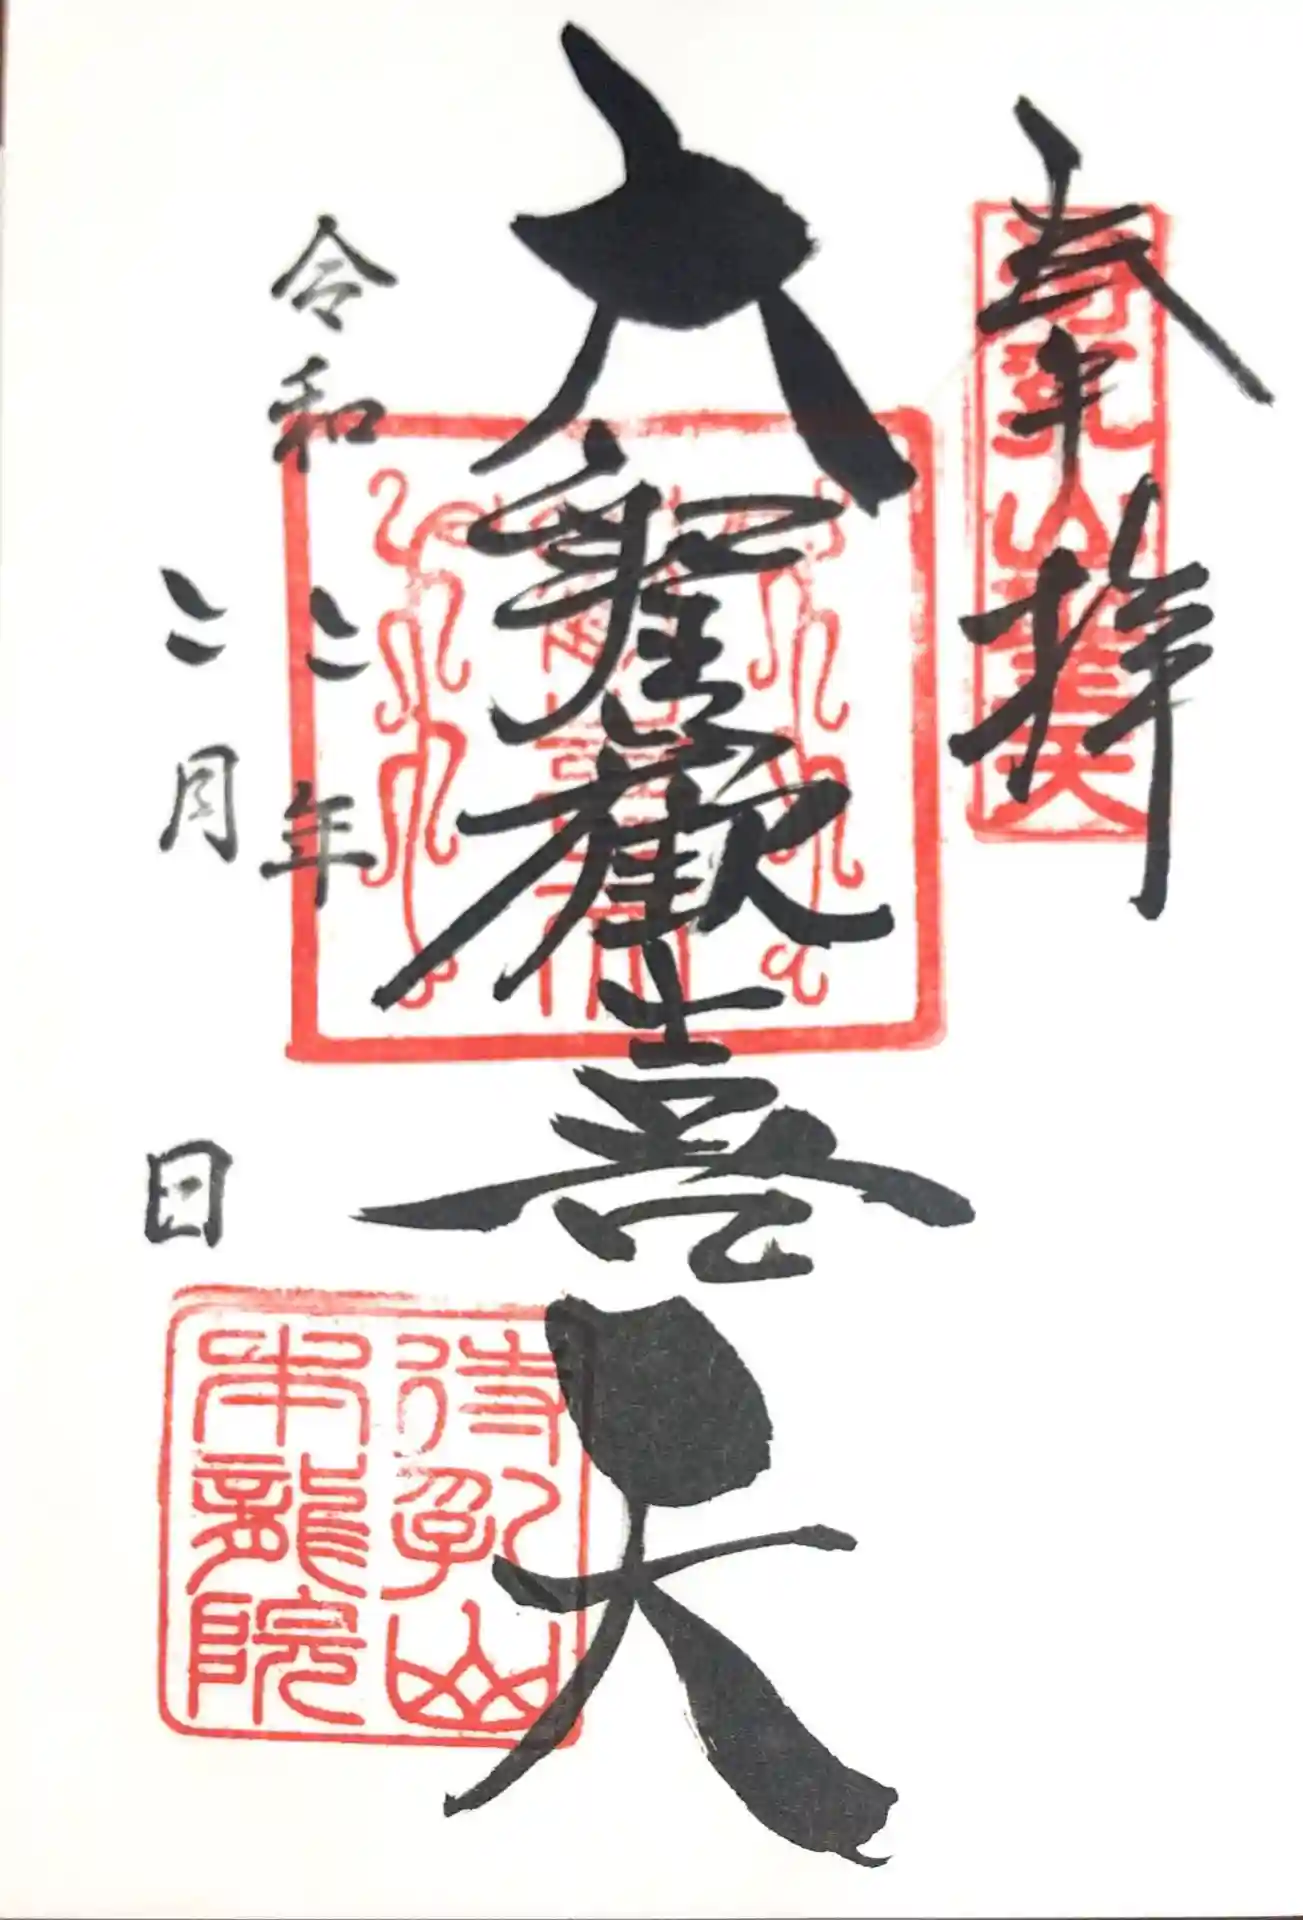 奉拝
待乳山聖天
大聖歓喜天
令和二年
二月
日
待乳山
本龍院